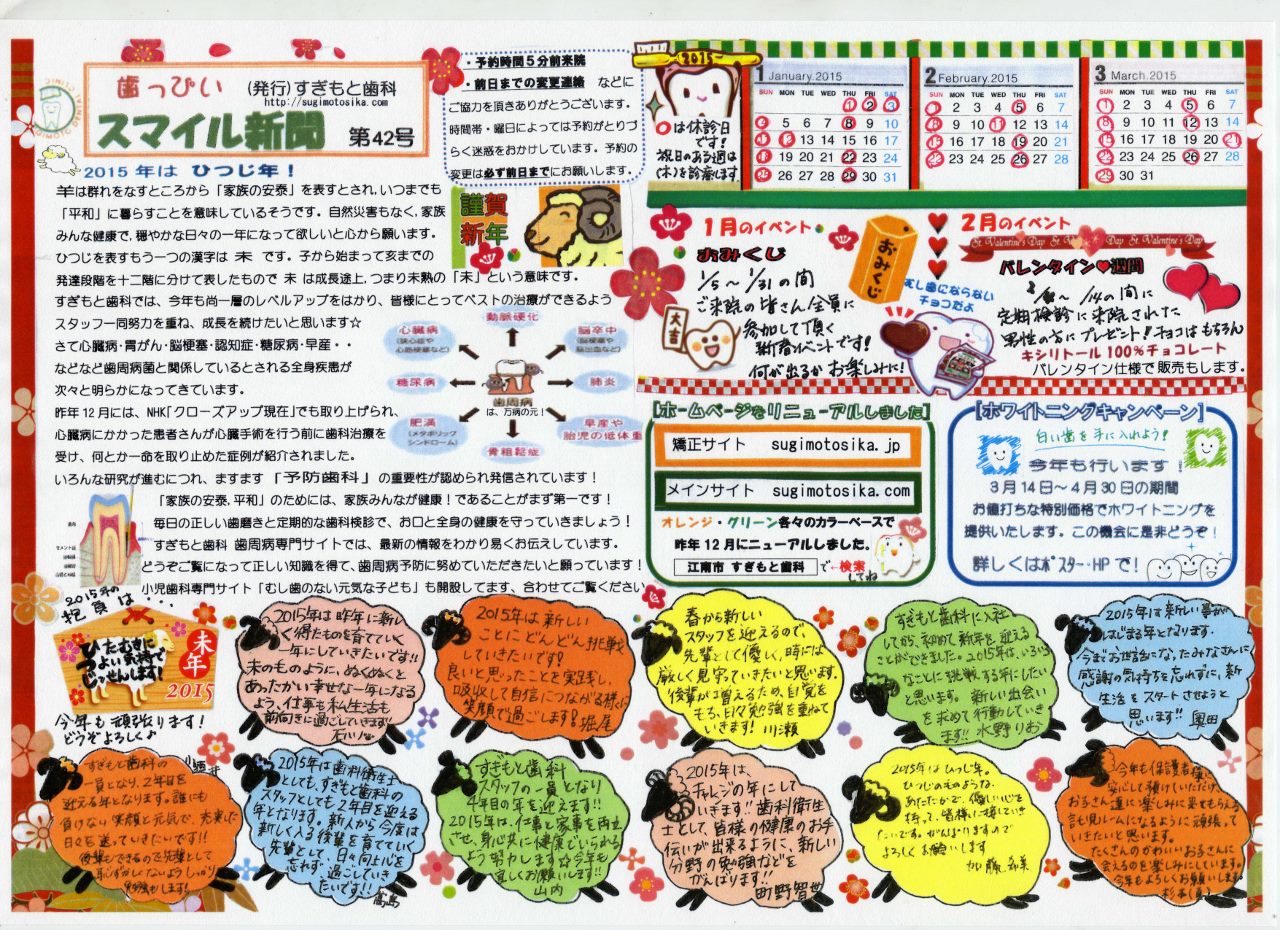 歯っぴい
(発行)すぎもと歯科
http://sugimotosika.com
スマイル新聞 第42号
・予約時間5分前来院
・前日までの変更連絡 などに
ご協力を頂きありがとうございます。
時間帯・曜日によっては予約がとりづ
らく迷惑をおかけしています。予約の
変更は必ず前日までにお願いします。
2015年は ひつじ年!
羊は群れをなすところから「家族の安泰」を表すとされ、いつまでも
「平和」に暮らすことを意味しているそうです。自然災害もなく、家族
みんな健康で、穏やかな日々の一年になって欲しいと心から願います。
ひつじを表すもう一つの漢字は 未 です。子から始まって亥までの
発達段階を十二階に分けて表したもので 未 は成長途上、つまり未熟の「未」という意味です。
すぎもと歯科では、今年も尚一層のレベルアップをはかり、皆様にとってベストの治療ができるよう
スタッフ一同努力を重ね、成長を続けたいと思います☆
さて心臓病・胃がん・脳梗塞・認知症・糖尿病・早産・・
などなど歯周病菌と関係しているとされる全身疾患が
次々と明らかになってきています。
昨年12月には、NHK「クローズアップ現在」でも取り上げられ、
心臓病にかかった患者さんが心臓手術を行う前に歯科治療を
受け、何とか一命を取り止めた症例が紹介されました。
いろんな研究が進むにつれ、ますます「予防歯科」の重要性が認められ発信されています!
「家族の安泰、平和」のためには、家族みんなが健康!であることがまず第一です!
毎日の正しい歯磨きと定期的な歯科検診で、お口と全身の健康を守っていきましょう!
すぎもと歯科 歯周病専門サイトでは、最新の情報をわかり易くお伝えしています。
どうぞご覧になって正しい知識を得て、歯周病予防に努めていただきたいと願っています!
小児歯科専門サイト「むし歯のない元気な子ども」も開設してます、合わせてご覧ください
謹賀
新年
動脈硬化
心臓病
(狭心症や
心筋梗塞など)
脳卒中
(脳梗塞や
脳出血など)
糖尿病
肺炎
歯周病
は、万病の元!
肥満
(メタボリック
シンドローム)
早産や
胎児の低体重
骨粗鬆症
2015
○は休診日
です!
祝日のある週は
(木)を診療します
1 January.2015
SUN MON TUE WED THU FRI SAT
1 2 3
4 5 6 7 8 9 10
11 12 13 14 15 16 17
18 19 20 21 22 23 24
25 26 27 28 29 30 31
2 February.2015
SUN MON TUE WED THU FRI SAT
1 2 3 4 5 6 7
8 9 10 11 12 13 14
15 16 17 18 19 20 21
22 23 24 25 26 27 28
3 March.2015
SUN MON TUE WED THU FRI SAT
1 2 3 4 5 6 7
8 9 10 11 12 13 14
15 16 17 18 19 20 21
22 23 24 25 26 27 28
29 30 31
1月のイベント
おみくじ
1/5〜1/31の間
ご来院の皆さん全員に
参加して頂く
新春イベントです!
何が出るかお楽しみに!
大吉
おみくじ
むし歯にならない
チョコだよ
2月のイベント
St. Valentine's Day St. Valentine's Day St. Valentine's Day
バレンタイン♥週間
〜/14の間に
定期検診に来院された
男性の方にプレゼント!チョコはもちろん
キシリトール100%チョコレート
バレンタイン仕様で販売もします。
[ホームページをリニューアルしました]
矯正サイト sugimotosika.jp
メインサイト sugimotosika.com
オレンジ・グリーン各々のカラーベースで
昨年12月にニューアルしました。
江南市 すぎもと歯科 で←検索
してね
[ホワイトニングキャンペーン]
白い歯を手に入れよう!
今年も行います!
3月14日〜4月30日の期間
お値打ちな特別価格でホワイトニングを
提供いたします。この機会に是非どうぞ!
詳しくはポスター・HPで!
2015年の
抱負は・・・
ひたむきに
つよい気持で
じっせんします!
未年
2015
今年も頑張ります!
どうぞよろしく♪
2015年は昨年に新し
く得たものを育てていく
一年にしていきたいです!!
未のもののように、ぬくぬくと
あったかい幸せな一年になる
よう、仕事も私生活も
前向きに過ごしていきます!
2015年は新しい
ことにどんどん挑戦
していきたいです!
良いと思ったことを実践し、
吸収して自信につながる様に
笑顔で過ごします! 堀尾
春から新しい
スタッフを迎えるので、
先輩として優しく、時には
厳しく見守っていきたいと思います。
後輩が増えるため、自覚を
もち、日々勉強を重ねて
いきます! 川瀬
すぎもと歯科に入社
してから、初めて新年を迎える
ことができました。2015年は、いろいろ
なことに挑戦する年にしたい
と思います。新しい出会い
を求めて行動していき
ます!! 水野りお
2015年は新しい事が
はじまる年となります。
今までお世話になったみなさんに
感謝の気持ちを忘れずに、新
生活をスタートさせようと
思います!! 奥田
すぎもと歯科の 酒井
一員となり、2年目を
迎える年となります。誰にも
負けない笑顔と元気で、充実した
日々を送っていきたいです!!
後輩もできるので先輩として
恥ずかしくないよう しっかり
勉強もします!
2015年は歯科衛生士
としても、すぎもと歯科の
スタッフとしても2年目を迎える
年となります。新人から今度は
新しく入る後輩を育てていく
先輩として、日々向上心を
忘れず、過ごしていき
たいです!!
すぎもと歯科
スタッフの一員となり
4年目の年を迎えます!!
2015年は、仕事と家事を両立
させ、身心共に健康でいられる
よう努力します☆今年も
宜しくお願いします!
山内
2015年は、
チャレンジの年にして
いきます!!歯科衛生
士として、皆様の健康のお手
伝いが出来るように、新しい
分野の勉強などを
がんばります!!
町野智世
2015年はひつじ年。
ひつじのもののような、
あたたかで、優しい心を
持って、皆様に接していき
たいです。がんばりますので
よろしくお願いします
今年も保護者様に
安心して預けていただけ、
お子さん達に楽しみに来てもらえる
託児ルームになるように頑張って
いきたいと思います。
たくさんのかわいいお子さんに
会えるのを楽しみにしています。
今年もよろしくお願いします。